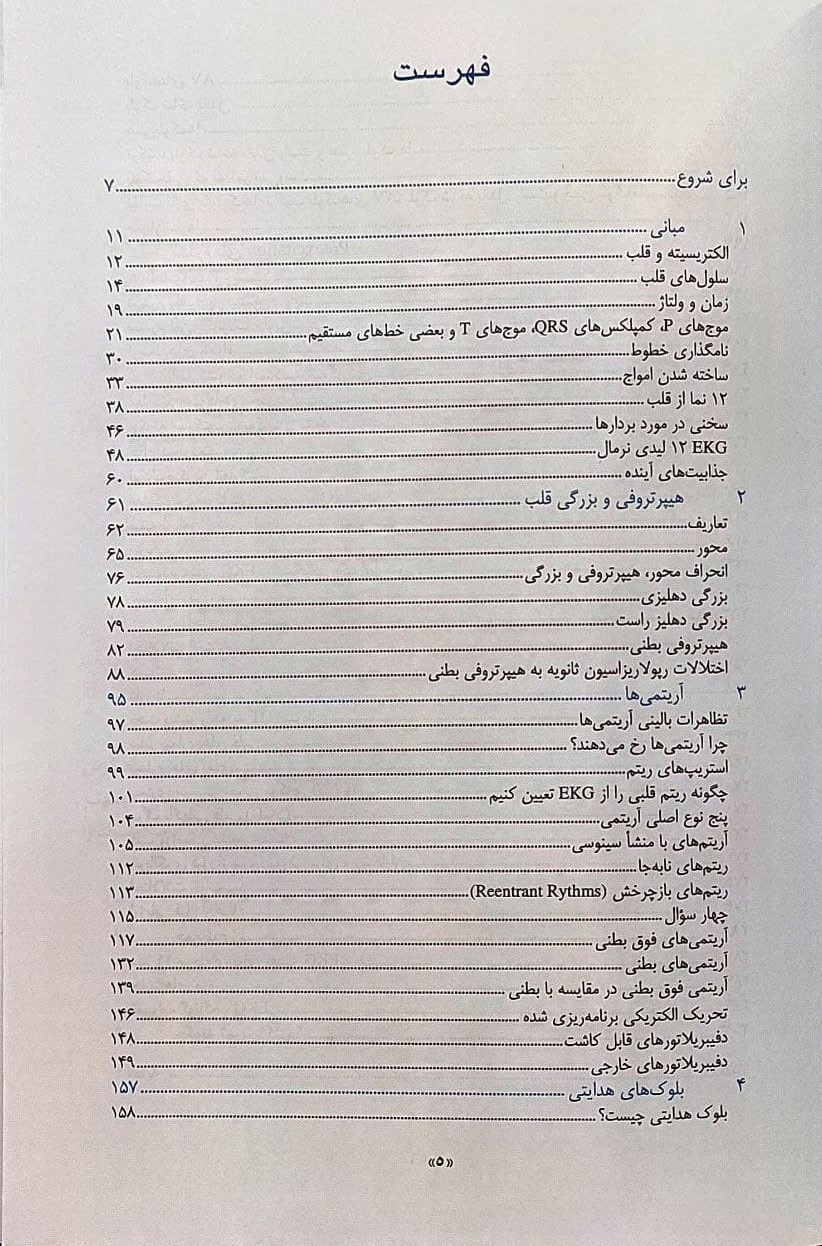 فهرست
برای شروع ........ ۷
۱ مبانی ........ ۱۱
الکتریسیته و قلب ........ ۱۲
سلول‌های قلب ........ ۱۴
زمان و ولتاژ ........ ۱۹
موج‌های P، کمپلکس‌های QRS، موج‌های T و بعضی خط‌های مستقیم ........ ۲۱
نامگذاری خطوط ........ ۳۰
ساخته شدن امواج ........ ۳۳
۱۲ نما از قلب ........ ۳۸
سخنی در مورد بردارها ........ ۴۶
EKG ۱۲ لیدی نرمال ........ ۴۸
جذابیت‌های آینده ........ ۶۰
۲ هیپرتروفی و بزرگی قلب ........ ۶۱
تعاریف ........ ۶۲
محور ........ ۶۵
انحراف محور، هیپرتروفی و بزرگی ........ ۷۶
بزرگی دهلیزی ........ ۷۸
بزرگی دهلیز راست ........ ۷۹
هیپرتروفی بطنی ........ ۸۲
اختلالات رپولاریزاسیون ثانویه به هیپرتروفی بطنی ........ ۸۸
۳ آریتمی‌ها ........ ۹۵
تظاهرات بالینی آریتمی‌ها ........ ۹۷
چرا آریتمی‌ها رخ می‌دهند؟ ........ ۹۸
استریپ‌های ریتم ........ ۹۹
چگونه ریتم قلبی را از EKG تعیین کنیم ........ ۱۰۱
پنج نوع اصلی آریتمی ........ ۱۰۴
آریتم‌های با منشأ سینوسی ........ ۱۰۵
ریتم‌های نابه‌جا ........ ۱۱۲
ریتم‌های بازچرخش (Reentrant Rythms) ........ ۱۱۳
چهار سؤال ........ ۱۱۵
آریتمی‌های فوق بطنی ........ ۱۱۷
آریتمی‌های بطنی ........ ۱۳۲
آریتمی فوق بطنی در مقایسه با بطنی ........ ۱۳۹
تحریک الکتریکی برنامه‌ریزی شده ........ ۱۴۶
دفیبریلاتورهای قابل کاشت ........ ۱۴۸
دفیبریلاتورهای خارجی ........ ۱۴۹
۴ بلوک‌های هدایتی ........ ۱۵۷
بلوک هدایتی چیست؟ ........ ۱۵۸
«۵»